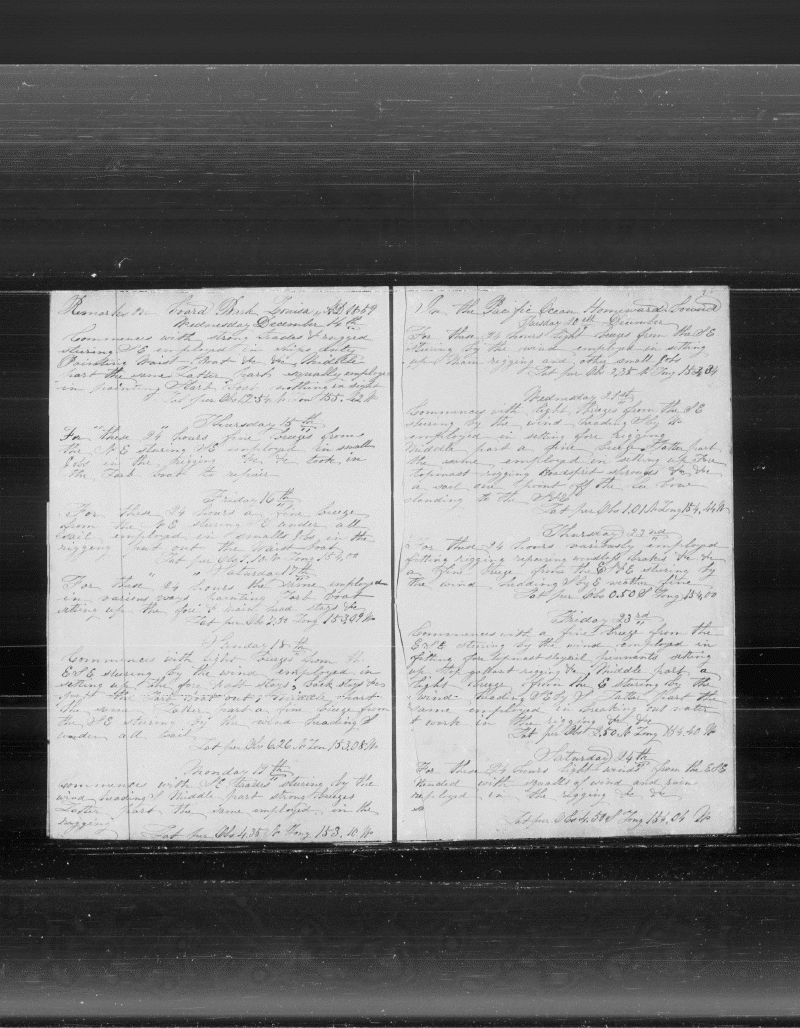 Remarks on board Bark Louisa AD 1859
Wednesday December 14th
Commences with strong trades & rugged
stering SE employed in ships duty
Painting Waist Boat &c &c Middle
part the same Latter part equally employed
in painting Starb boat nothing in sight
Lat per Obs 12.54 N Lon 155.42 W
Thursday 15th
For these 24 hours fine breezes from
the NE stering SE employed in small
Jobs in the rigging &c &c took in
the Larb boat to repair
Friday 16th
For these 24 hours a fine breeze
from the NE stering SE under all
sail employed in small Jobs in the
rigging put out the Waist boat
Lat per Obs 10 N Long 154,00
Saturday 17th
For these 24 hours the same employed
in various ways painting Larb boat
setting up the fore & main head stays &c
Lat per Obs 7,30 Long 153,69 W
Sunday 18th
Commences with light breezes from the
ESE stering by the wind employed in
setting up the fore
the Larb boat out Middle part
the same Latter part a fine breeze from
the SE stering by the wind heading S
under all sail
Lat per Obs 6.26 N Lon 153,08 W
Monday 19th
Commences with SE trades stering by the
wind heading S Middle part strong breezes
Latter part the same employed in the
rigging
Lat per Obs 4,35 N Long 153.10 W
In the Pacific Ocean Homeward bound
Tuesday 20th December
For these 24 hours light breezes from the SE
stering by the wind employed in setting
up Main rigging and other small Jobs
Lat per Obs 2,35 N Long 153,34
Wednesday 21st
Commences with light breezes from the SE
stering by the wind heading S by W
employed in setting fore rigging
Middle part a fine breeze Latter part
the same employed in setting up Fore
topmast rigging Bowsprit &c &c
a sail one point off the Lee bow
standing to the
Lat per Obs 1.01 N Long 154,44 W
Thursday 22nd
For these 24 hours variously employed
fitting rigging repairing &c &c
a fine breeze from the ESE stering by
the wind heading S by E
Lat per Obs 0.50 S Long 154,00
Friday 23rd
Commences with a fine breeze from the
ESE stering by the wind employed in
fitting fore topmast staysail pennants setting
up top gallant rigging &c Middle part a
light breeze from the E stering by the
wind heading Latter part the
same employed in breaking out water
& work in the rigging &c &c
Lat per Obs 2.50 S Long 154.40 W
Saturday 24th
For these 24 hours light winds from the ESE
attended with squalls of wind and rain
employed in the rigging &c &c
so
Lat per Obs 4.50 S Long 154,06 W